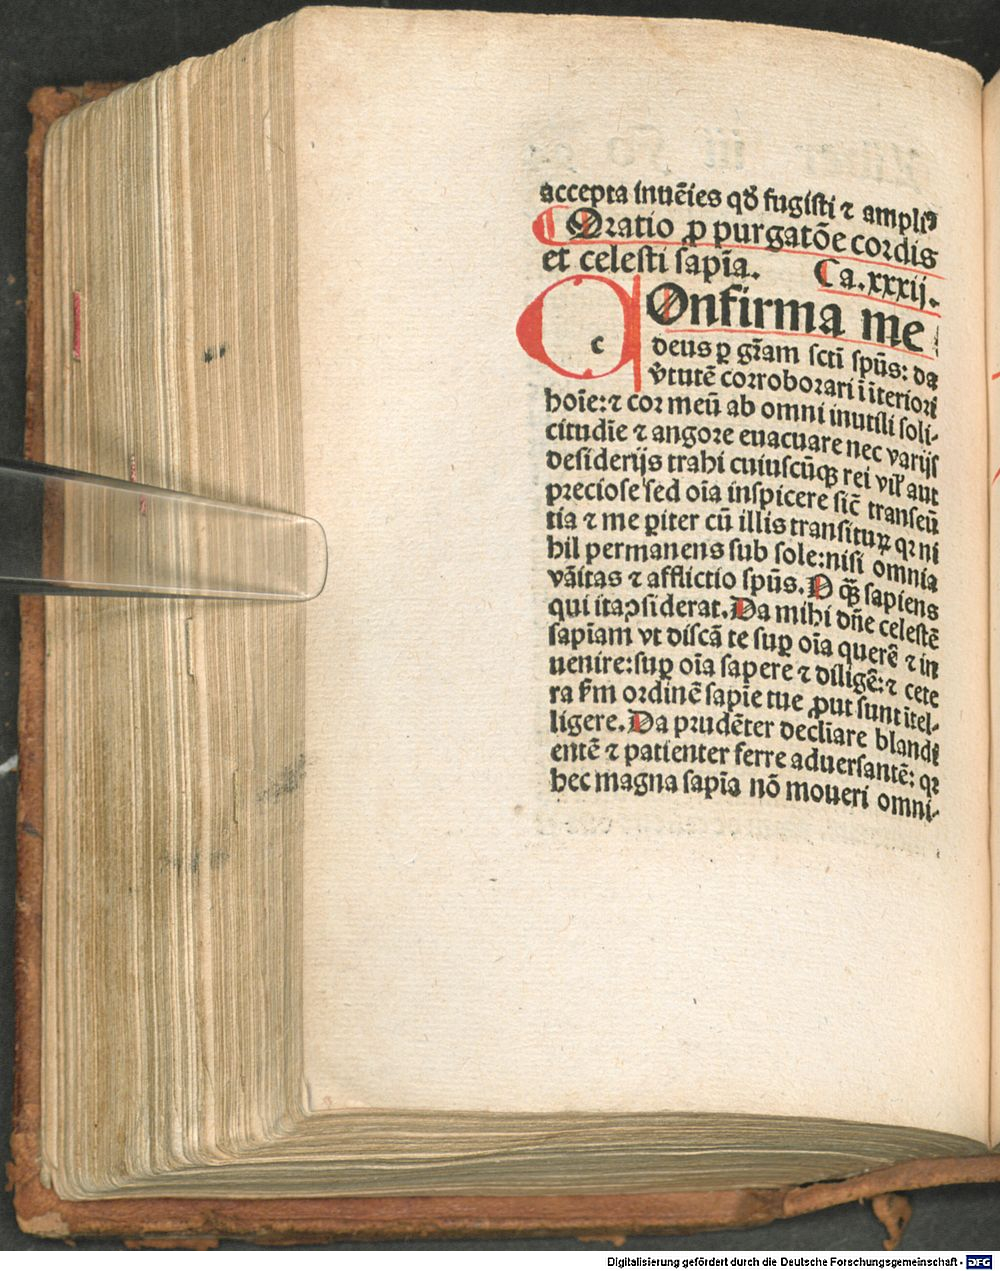 accepta inuēies qď fugisti ⁊ ampliꝰ
Oratio ꝓ purgatōe cordis
et celesti sapīa. Ca.xxxij.
cOnfirma me
deus ꝑ gr̄am sctī spūs: da
v̄tutē corroborari ī īteriori
hoīe: ⁊ cor meū ab omni inutili soli-
citudīe ⁊ angore euacuare nec varijs
desiderijs trahi cuiuscūqꝫ rei vil' aut
preciose sed oīa inspicere sic̄ transeū
tia ⁊ me ꝑiter cū illis transiturꝰ qꝛ ni
hil permanens sub sole: nisi omnia
vāitas ⁊ afflictio spūs. O qꝫ̄ sapiens
qui ita ↄsiderat. Da mihi dn̄e celestē
sapīam vt discā te suꝑ oīa querē ⁊ in
uenire: suꝑ oīa sapere ⁊ diligē: ⁊ cete
ra ẜm ordinē sapīe tue ꝓut sunt ītel-
ligere. Da prudēter declīare blandi
entē ⁊ patienter ferre aduersantē: qꝛ
hec magna sapīa nō moueri omni-
Digitalisierung gefördert durch die Deutsche Forschungsgemeinschaft - DFG